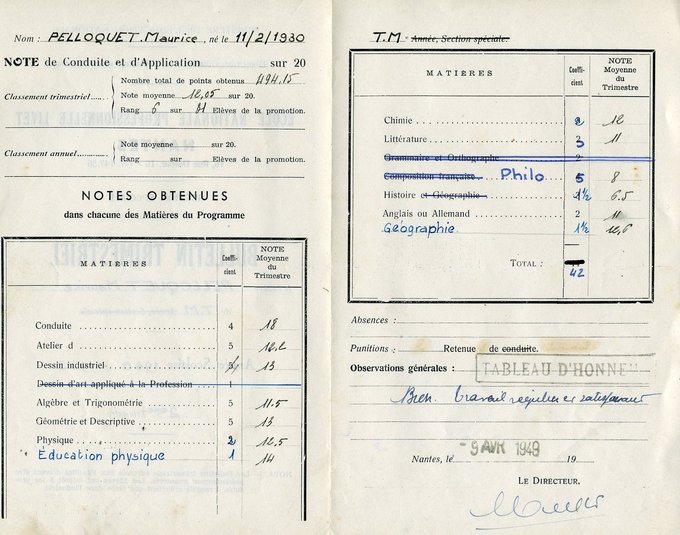 Nom : PELLOQUET. Maurice, né le 11/2/1930
NOTE de Conduite et d'Application sur 20
Classement trimestriel
Nombre total de points obtenus 494.15
Note moyenne 12,05 sur 20.
Rang 6 sur Elèves de la promotion.
Classement annuel
Note moyenne sur 20.
Rang sur Elèves de la promotion.
NOTES OBTENUES
dans chacune des Matières du Programme
MATIÈRES Coefficient NOTE Moyenne du Trimestre
Conduite 4 18
Atelier d 5 12.2
Dessin industriel 13
Dessin d'art appliqué à la Profession 1
Algèbre et Trigonométrie 5 11.5
Géométrie et Descriptive 5 13
Physique 2 12.5
Éducation physique 1 14
T.M Année, Section spéciale.
MATIÈRES Coefficient NOTE Moyenne du Trimestre
Chimie 2 12
Littérature 3 11
Grammaire et Orthographe 2
Composition française Philo 5 8
Histoire et Géographie 1½ 6.5
Anglais ou Allemand 2 11
Géographie 1½ 12,6
TOTAL :
42
Absences :
Punitions : Retenue de conduite.
Observations générales : TABLEAU D'HONNEUR
Bien. travail régulier et satisfaisant
-9 AVR 1949
Nantes, le 19
LE DIRECTEUR.